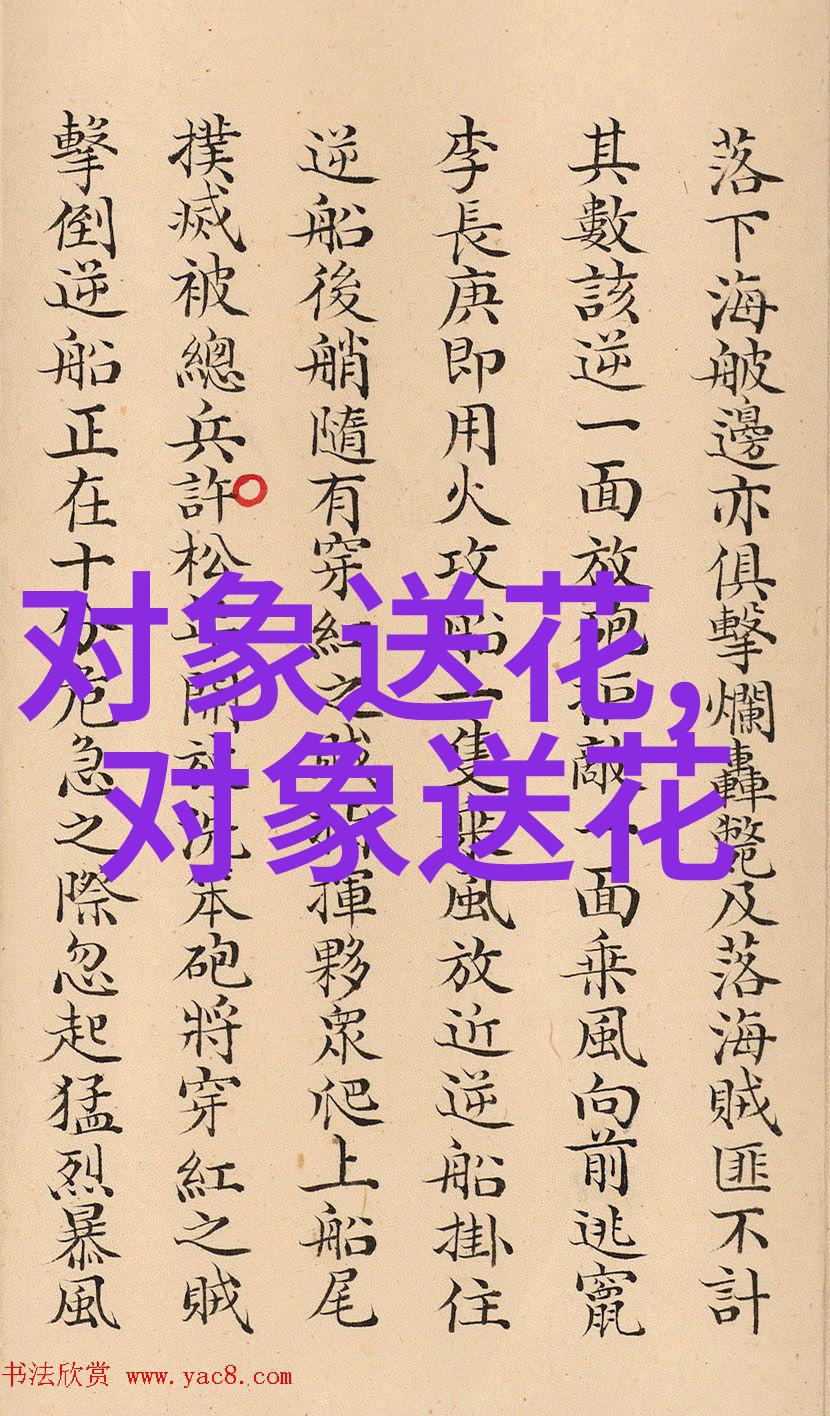 落下海舷邊亦俱擊爛轟斃及落海賊匪不計
其數該逆一面放砲拒敵一面乗風向前逃竄
李長庚即用火攻船一隻乗風放近逆船掛住
逆船後艄隨有穿紅之賊指揮夥眾爬上船尾
撲滅被總兵許松年開放洗笨砲將穿紅之賊
擊倒逆船正在十分危急之際忽起猛烈暴風
对象送花,
对象送花
书法欣赏 www.yac8.com